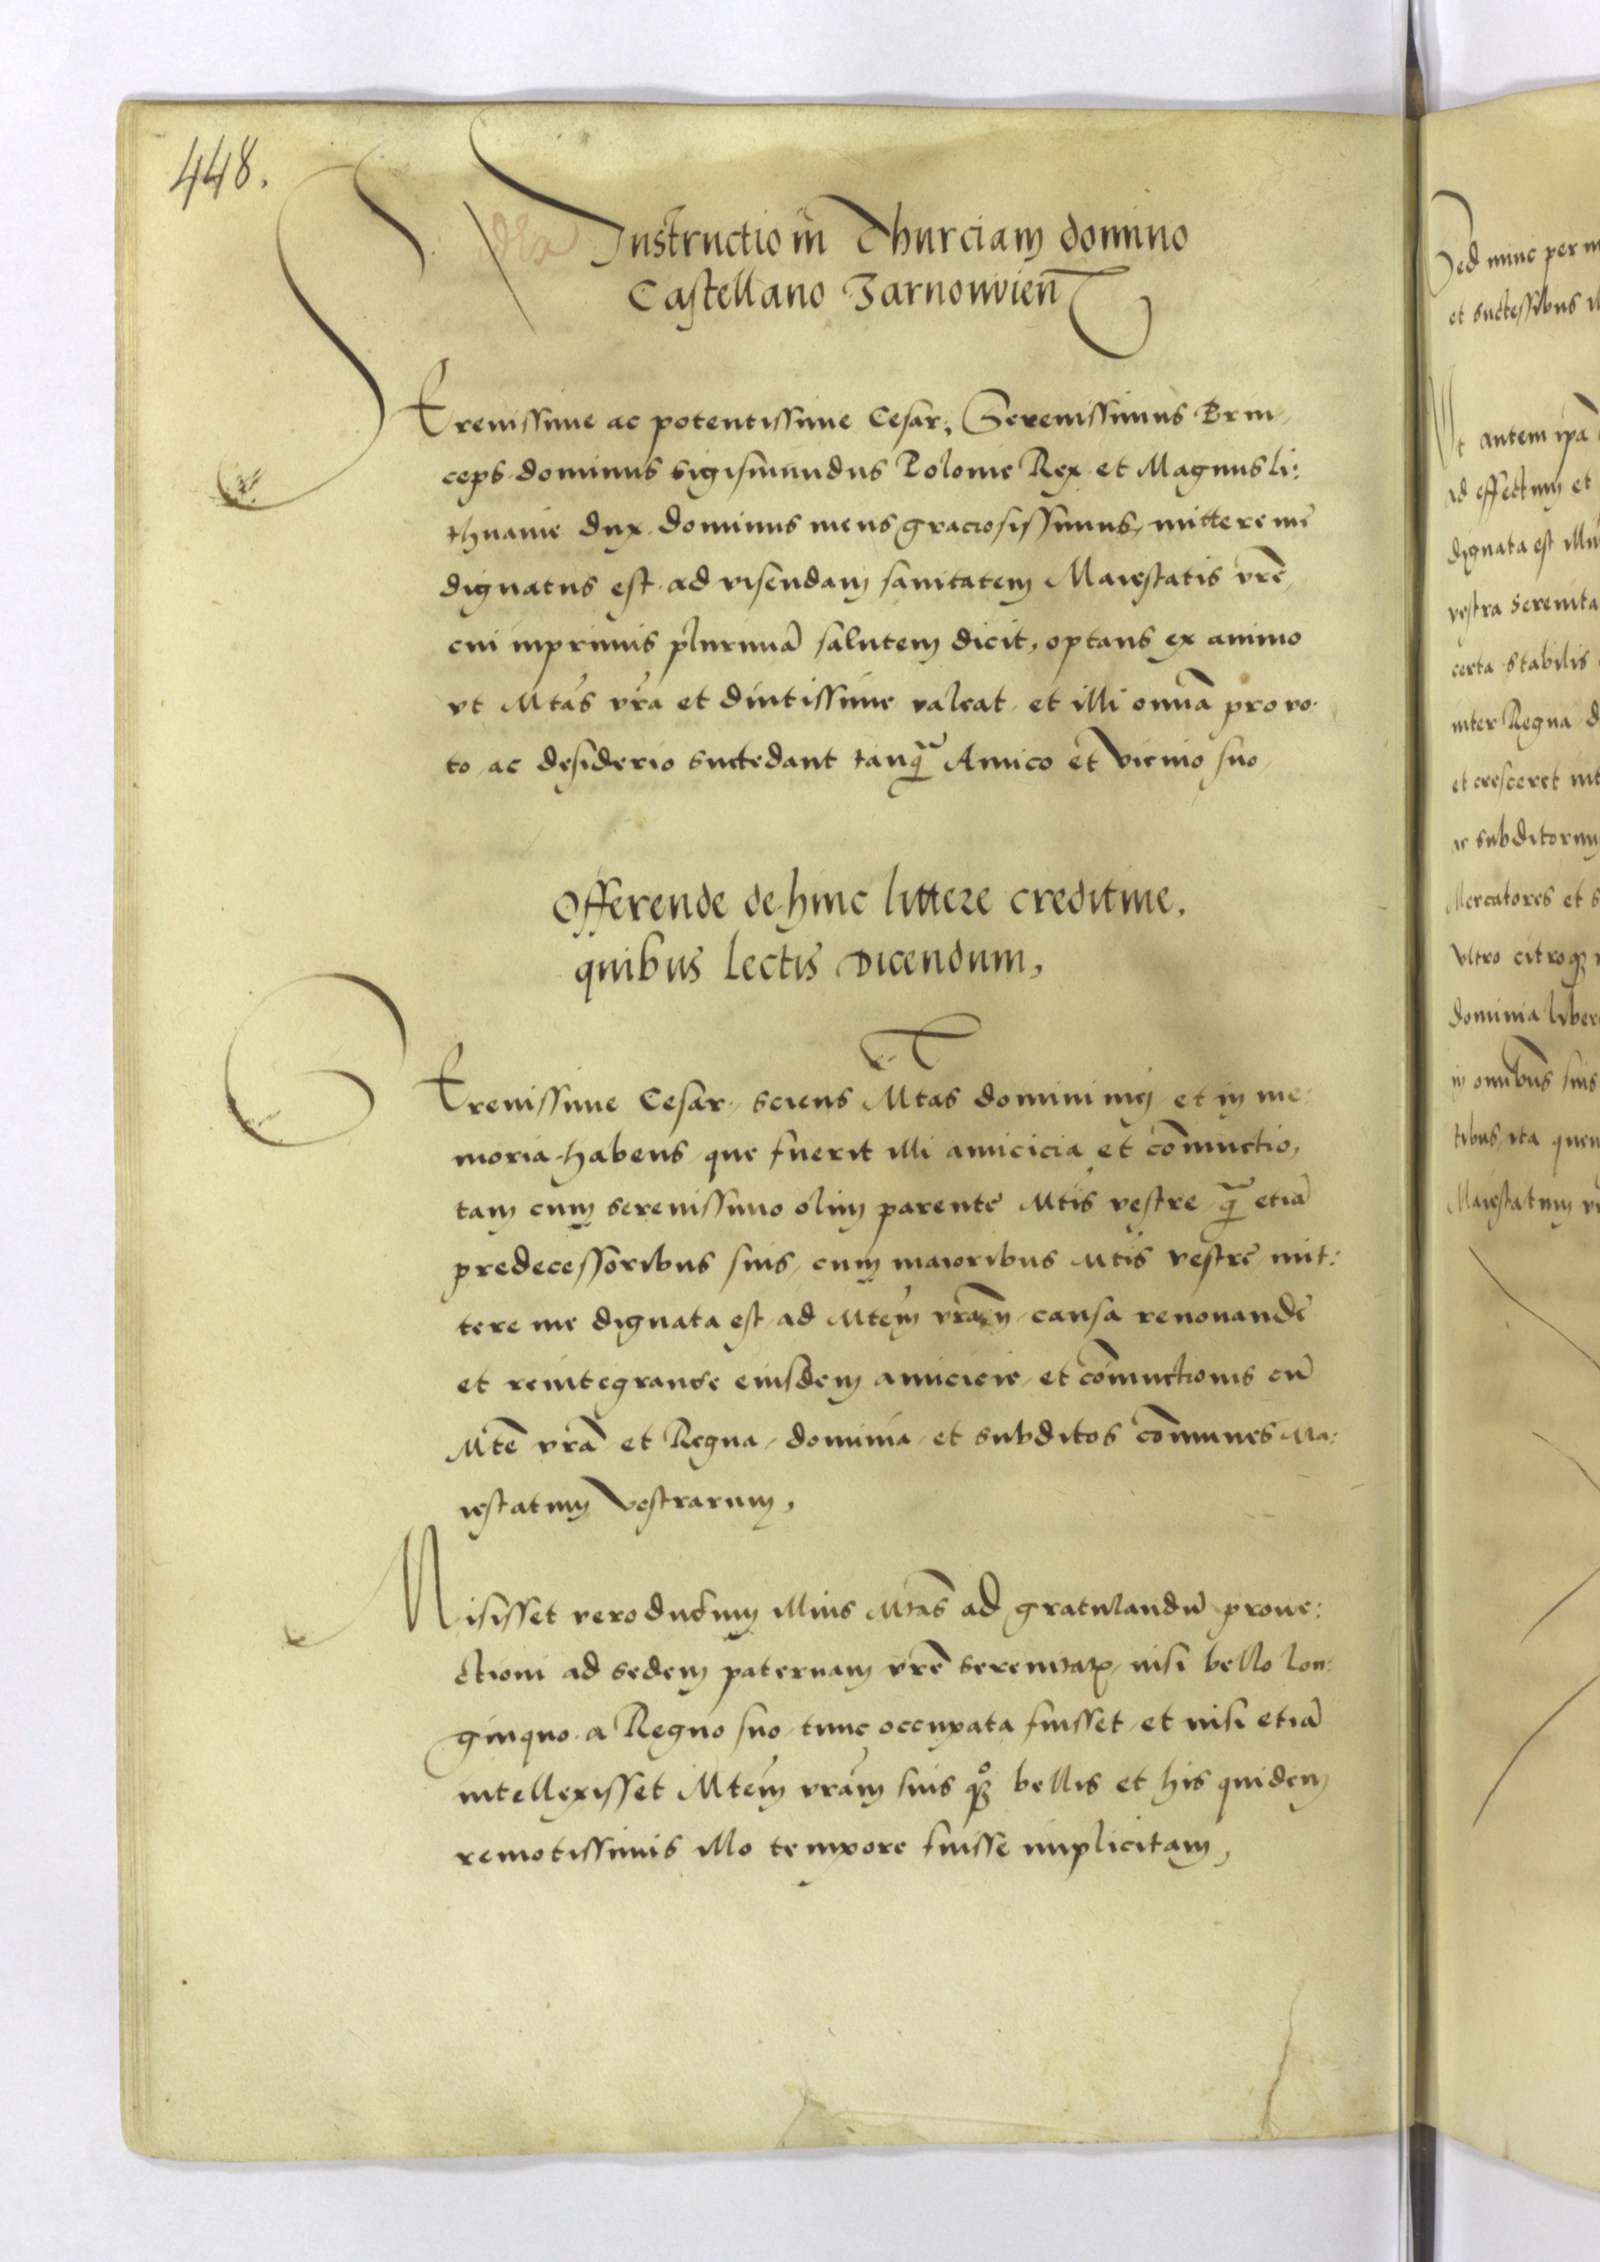 448.
Instructio in Thurciam domino
Castellano Zarnowien
Serenissime ac potentissime Cesar, Serenissimus Prin-
ceps dominus Sigismundus Polonie Rex et Magnus li:
thuanie dux dominus meus graciosissimus, mittere me
dignatus est ad visendam sanitatem Maiestatis vrē
cui inprimis plurimā salutem dicit, optans ex animo
vt Mtas vra et diutissime valeat et illi omnia pro vo-
to ac desiderio succedant tanq̄ Amico et Vicino suo
Offerende dehinc littere creditiue,
quibus lectis dicendum,
Serenissime Cesar, sciens Mtas domini mei et in me:
moria habens que fuerit illi amicicia et cōiunctio,
tam cum serenissimo olim parente Mtis vestre q̄ etiā
predecessoribus suis, cum maioribus Mtis vestre mit:
tere me dignata est ad Mtem vram causa renouande
et reintegrande eiusdem amicicie et cōiunctionis cū
Mte vrā et Regna, dominia et subditos cōmunes Ma:
iestatum Vestrarum,
Misisset vero dudum illius Mtas ad gratulandū proue:
ctioni ad sedem paternam vrē serenitatis, nisi bello lon:
ginquo a Regno suo tunc occupata fuisset et nisi etiā
intellexisset Mtem vram suis qȝ bellis et his quidem
remotissimis illo tempore fuisse implicitam,
Sed nunc per
et successibus
Vt autem ipā
ad effectum et
dignata est
vestra serenita
certa stabilis
inter Regna
et cresceret
ac subditorum
Mercatores et
Vltro citroqȝ
dominia liber
in omnibus suis
tibus, ita quem
Maiestatum